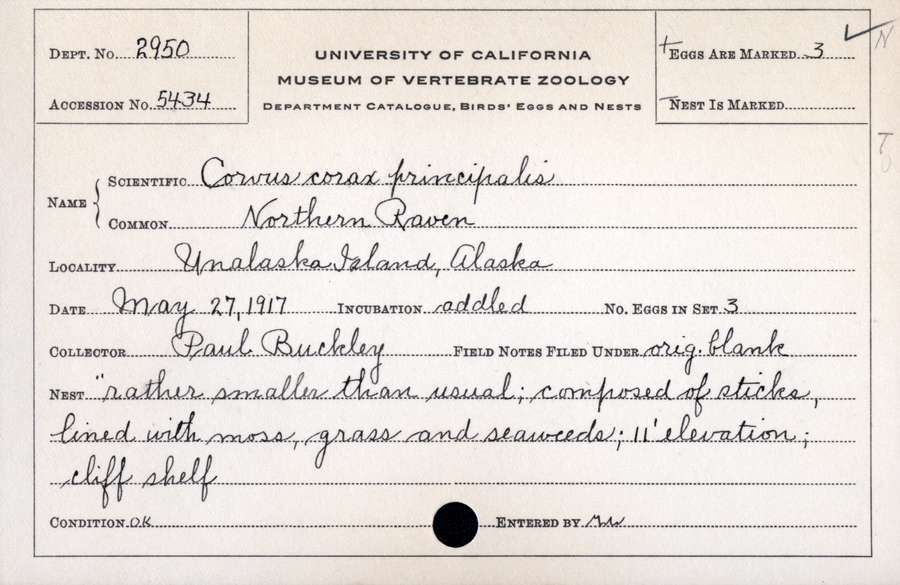 Dept. No. 2950
Accession No. 5434
UNIVERSITY OF CALIFORNIA
MUSEUM OF VERTEBRATE ZOOLOGY
Department Catalogue, Birds' Eggs and Nests
Eggs Are Marked 3
Nest Is Marked
N
Name
Scientific Corvus corax principalis
Common Northern Raven
Locality Unalaska Island, Alaska
Date May 27, 1917 Incubation addled No. Eggs in Set 3
Collector Paul Buckley Field Notes Filed Under orig. blank
Nest "rather smaller than usual; composed of sticks,
lined with moss, grass and seaweeds; 11' elevation;
cliff shelf
Condition OK Entered by